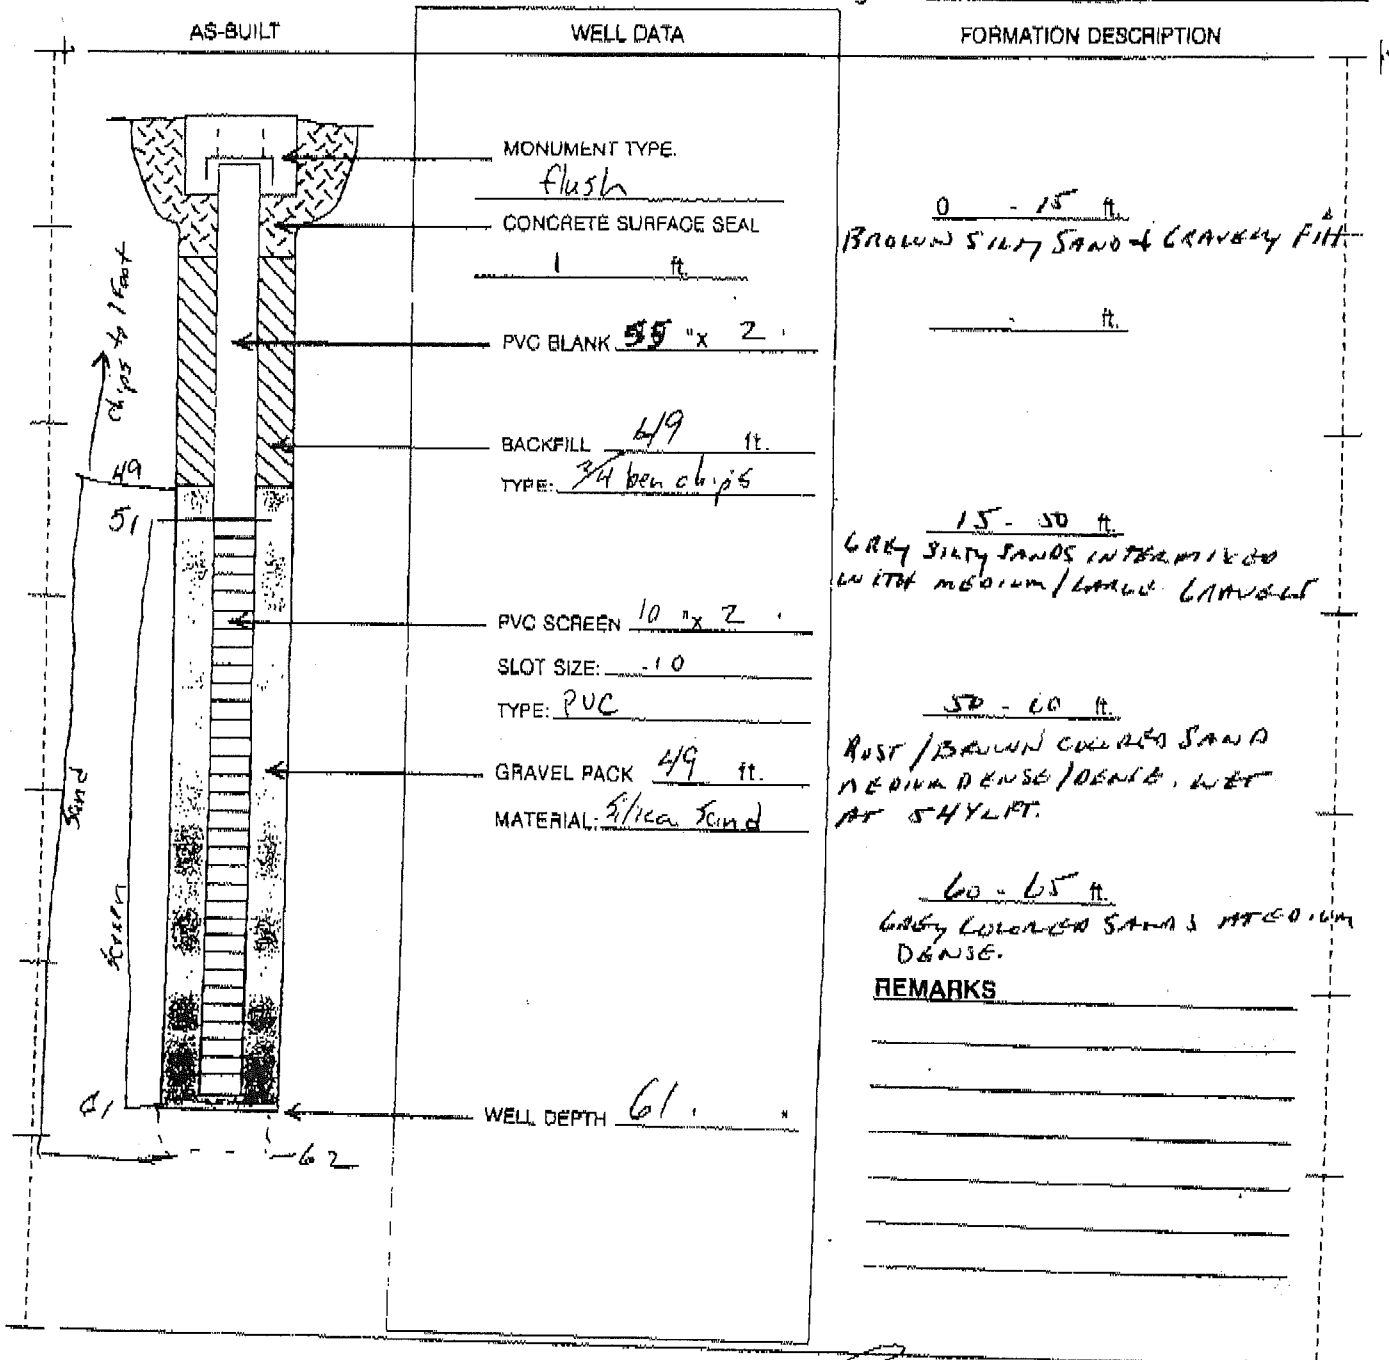 AS-BUILT
WELL DATA
FORMATION DESCRIPTION
MONUMENT TYPE.
flush
CONCRETE SURFACE SEAL
1 ft.
PVC BLANK 55 "x 2 '
BACKFILL 49 ft.
TYPE: 3/4 ben chips
PVC SCREEN 10 "x 2 '
SLOT SIZE: .10
TYPE: PVC
GRAVEL PACK 49 ft.
MATERIAL: Silica Sand
WELL DEPTH 61 ' "
chips to 1 Foot
49
51
Sand
Screen
61
62
0 - 15 ft.
BROWN SILTY SAND & GRAVELY FILL
- ft.
15 - 50 ft.
GREY SILTY SANDS INTERMIXED
WITH MEDIUM/LARGE GRAVELS
50 - 60 ft.
RUST/BROWN COLORED SAND
MEDIUM DENSE/DENSE. WET
AT
60 - 65 ft.
GREY COLORED SANDS MEDIUM
DENSE.
REMARKS